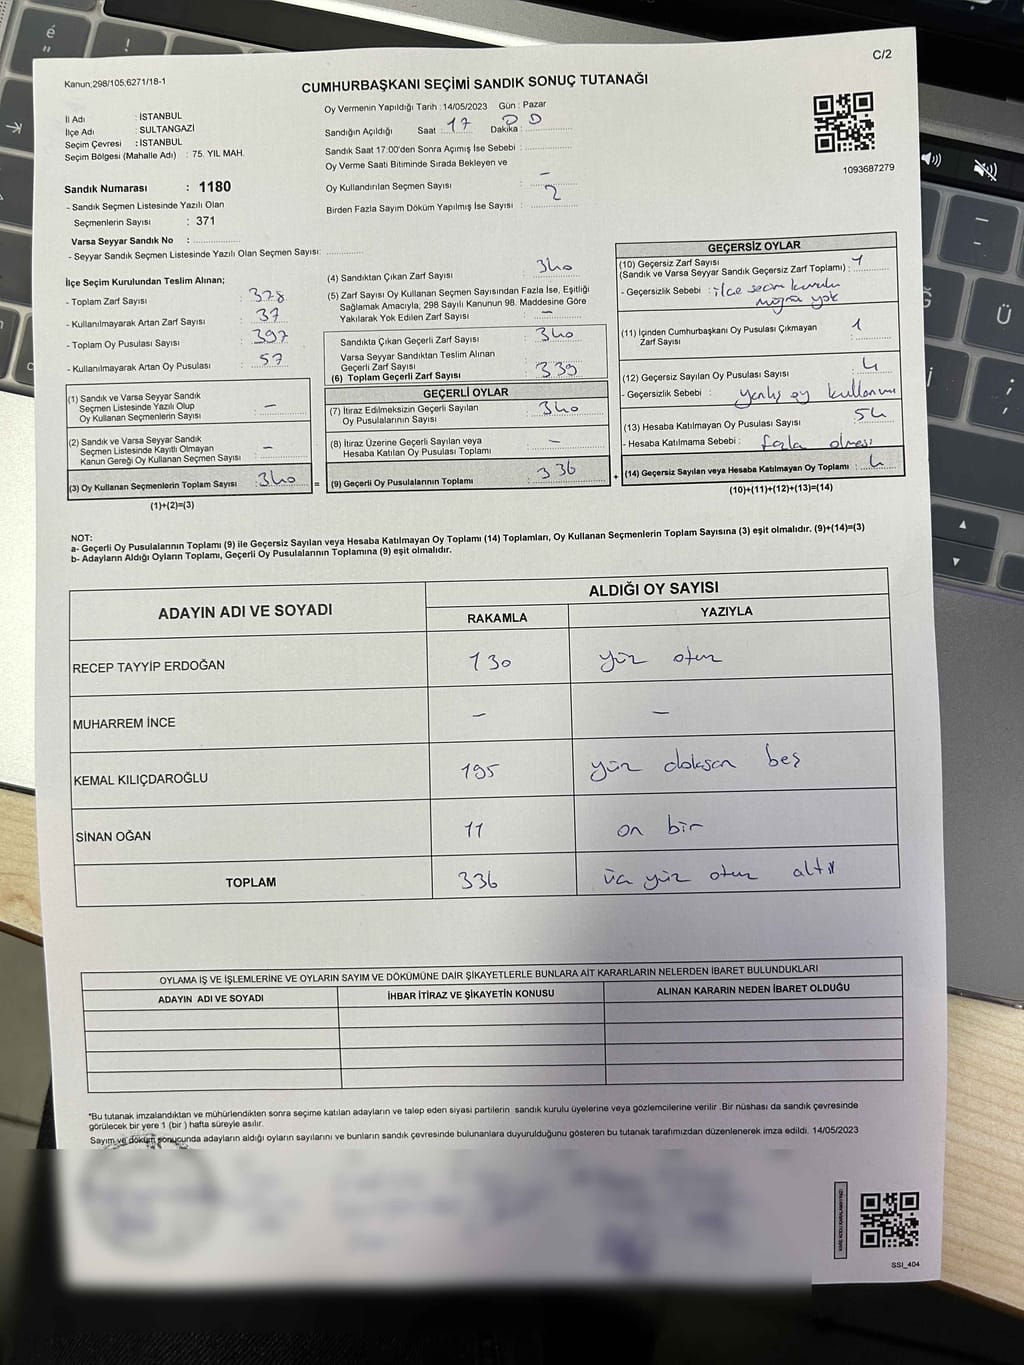 C/2
Kanun;298/105,6271/18-1
CUMHURBAŞKANI SEÇİMİ SANDIK SONUÇ TUTANAĞI
İl Adı : İSTANBUL
İlçe Adı : SULTANGAZİ
Seçim Çevresi : İSTANBUL
Seçim Bölgesi (Mahalle Adı) : 75. YIL MAH.
Sandık Numarası : 1180
- Sandık Seçmen Listesinde Yazılı Olan
Seçmenlerin Sayısı : 371
Varsa Seyyar Sandık No :
- Seyyar Sandık Seçmen Listesinde Yazılı Olan Seçmen Sayısı:
Oy Vermenin Yapıldığı Tarih : 14/05/2023 Gün : Pazar
Sandığın Açıldığı Saat : 17 Dakika :
Sandık Saat 17:00'den Sonra Açımış İse Sebebi :
Oy Verme Saati Bitiminde Sırada Bekleyen ve
Oy Kullandırılan Seçmen Sayısı : -
Birden Fazla Sayım Döküm Yapılmış İse Sayısı : 2
1093687279
İlçe Seçim Kurulundan Teslim Alınan;
- Toplam Zarf Sayısı : 378
- Kullanılmayarak Artan Zarf Sayısı : 37
- Toplam Oy Pusulası Sayısı : 397
- Kullanılmayarak Artan Oy Pusulası : 57
(1) Sandık ve Varsa Seyyar Sandık
Seçmen Listesinde Yazılı Olup
Oy Kullanan Seçmenlerin Sayısı : -
(2) Sandık ve Varsa Seyyar Sandık
Seçmen Listesinde Kayıtlı Olmayan
Kanun Gereği Oy Kullanan Seçmen Sayısı : -
(3) Oy Kullanan Seçmenlerin Toplam Sayısı : 340 =
(1)+(2)=(3)
(4) Sandıktan Çıkan Zarf Sayısı : 340
(5) Zarf Sayısı Oy Kullanan Seçmen Sayısından Fazla İse, Eşitliği
Sağlamak Amacıyla, 298 Sayılı Kanunun 98. Maddesine Göre
Yakılarak Yok Edilen Zarf Sayısı : -
Sandıkta Çıkan Geçerli Zarf Sayısı : 340
Varsa Seyyar Sandıktan Teslim Alınan
Geçerli Zarf Sayısı :
(6) Toplam Geçerli Zarf Sayısı : 339
GEÇERLİ OYLAR
(7) İtiraz Edilmeksizin Geçerli Sayılan
Oy Pusulalarının Sayısı : 340
(8) İtiraz Üzerine Geçerli Sayılan veya
Hesaba Katılan Oy Pusulası Toplamı : -
(9) Geçerli Oy Pusulalarının Toplamı : 336 +
GEÇERSİZ OYLAR
(10) Geçersiz Zarf Sayısı
(Sandık ve Varsa Seyyar Sandık Geçersiz Zarf Toplamı) : 1
- Geçersizlik Sebebi : ilçe seçim kurulu
mührü yok
(11) İçinden Cumhurbaşkanı Oy Pusulası Çıkmayan
Zarf Sayısı : 1
(12) Geçersiz Sayılan Oy Pusulası Sayısı : 4
- Geçersizlik Sebebi : yanlış oy kullanımı
(13) Hesaba Katılmayan Oy Pusulası Sayısı : 54
- Hesaba Katılmama Sebebi : fazla olması
(14) Geçersiz Sayılan veya Hesaba Katılmayan Oy Toplamı : 4
(10)+(11)+(12)+(13)=(14)
NOT:
a- Geçerli Oy Pusulalarının Toplamı (9) ile Geçersiz Sayılan veya Hesaba Katılmayan Oy Toplamı (14) Toplamları, Oy Kullanan Seçmenlerin Toplam Sayısına (3) eşit olmalıdır. (9)+(14)=(3)
b- Adayların Aldığı Oyların Toplamı, Geçerli Oy Pusulalarının Toplamına (9) eşit olmalıdır.
ADAYIN ADI VE SOYADI
ALDIĞI OY SAYISI
RAKAMLA YAZIYLA
RECEP TAYYİP ERDOĞAN 130 yüz otuz
MUHARREM İNCE - -
KEMAL KILIÇDAROĞLU 195 yüz doksan beş
SİNAN OĞAN 11 on bir
TOPLAM 336 üç yüz otuz altı
OYLAMA İŞ VE İŞLEMLERİNE VE OYLARIN SAYIM VE DÖKÜMÜNE DAİR ŞİKAYETLERLE BUNLARA AİT KARARLARIN NELERDEN İBARET BULUNDUKLARI
ADAYIN ADI VE SOYADI İHBAR İTİRAZ VE ŞİKAYETİN KONUSU ALINAN KARARIN NEDEN İBARET OLDUĞU
*Bu tutanak imzalandıktan ve mühürlendikten sonra seçime katılan adayların ve talep eden siyasi partilerin sandık kurulu üyelerine veya gözlemcilerine verilir .Bir nüshası da sandık çevresinde
görülecek bir yere 1 (bir ) hafta süreyle asılır.
Sayım ve döküm sonucunda adayların aldığı oyların sayılarını ve bunların sandık çevresinde bulunanlara duyurulduğunu gösteren bu tutanak tarafımızdan düzenlenerek imza edildi. 14/05/2023
SSI_404
é
!
Ü